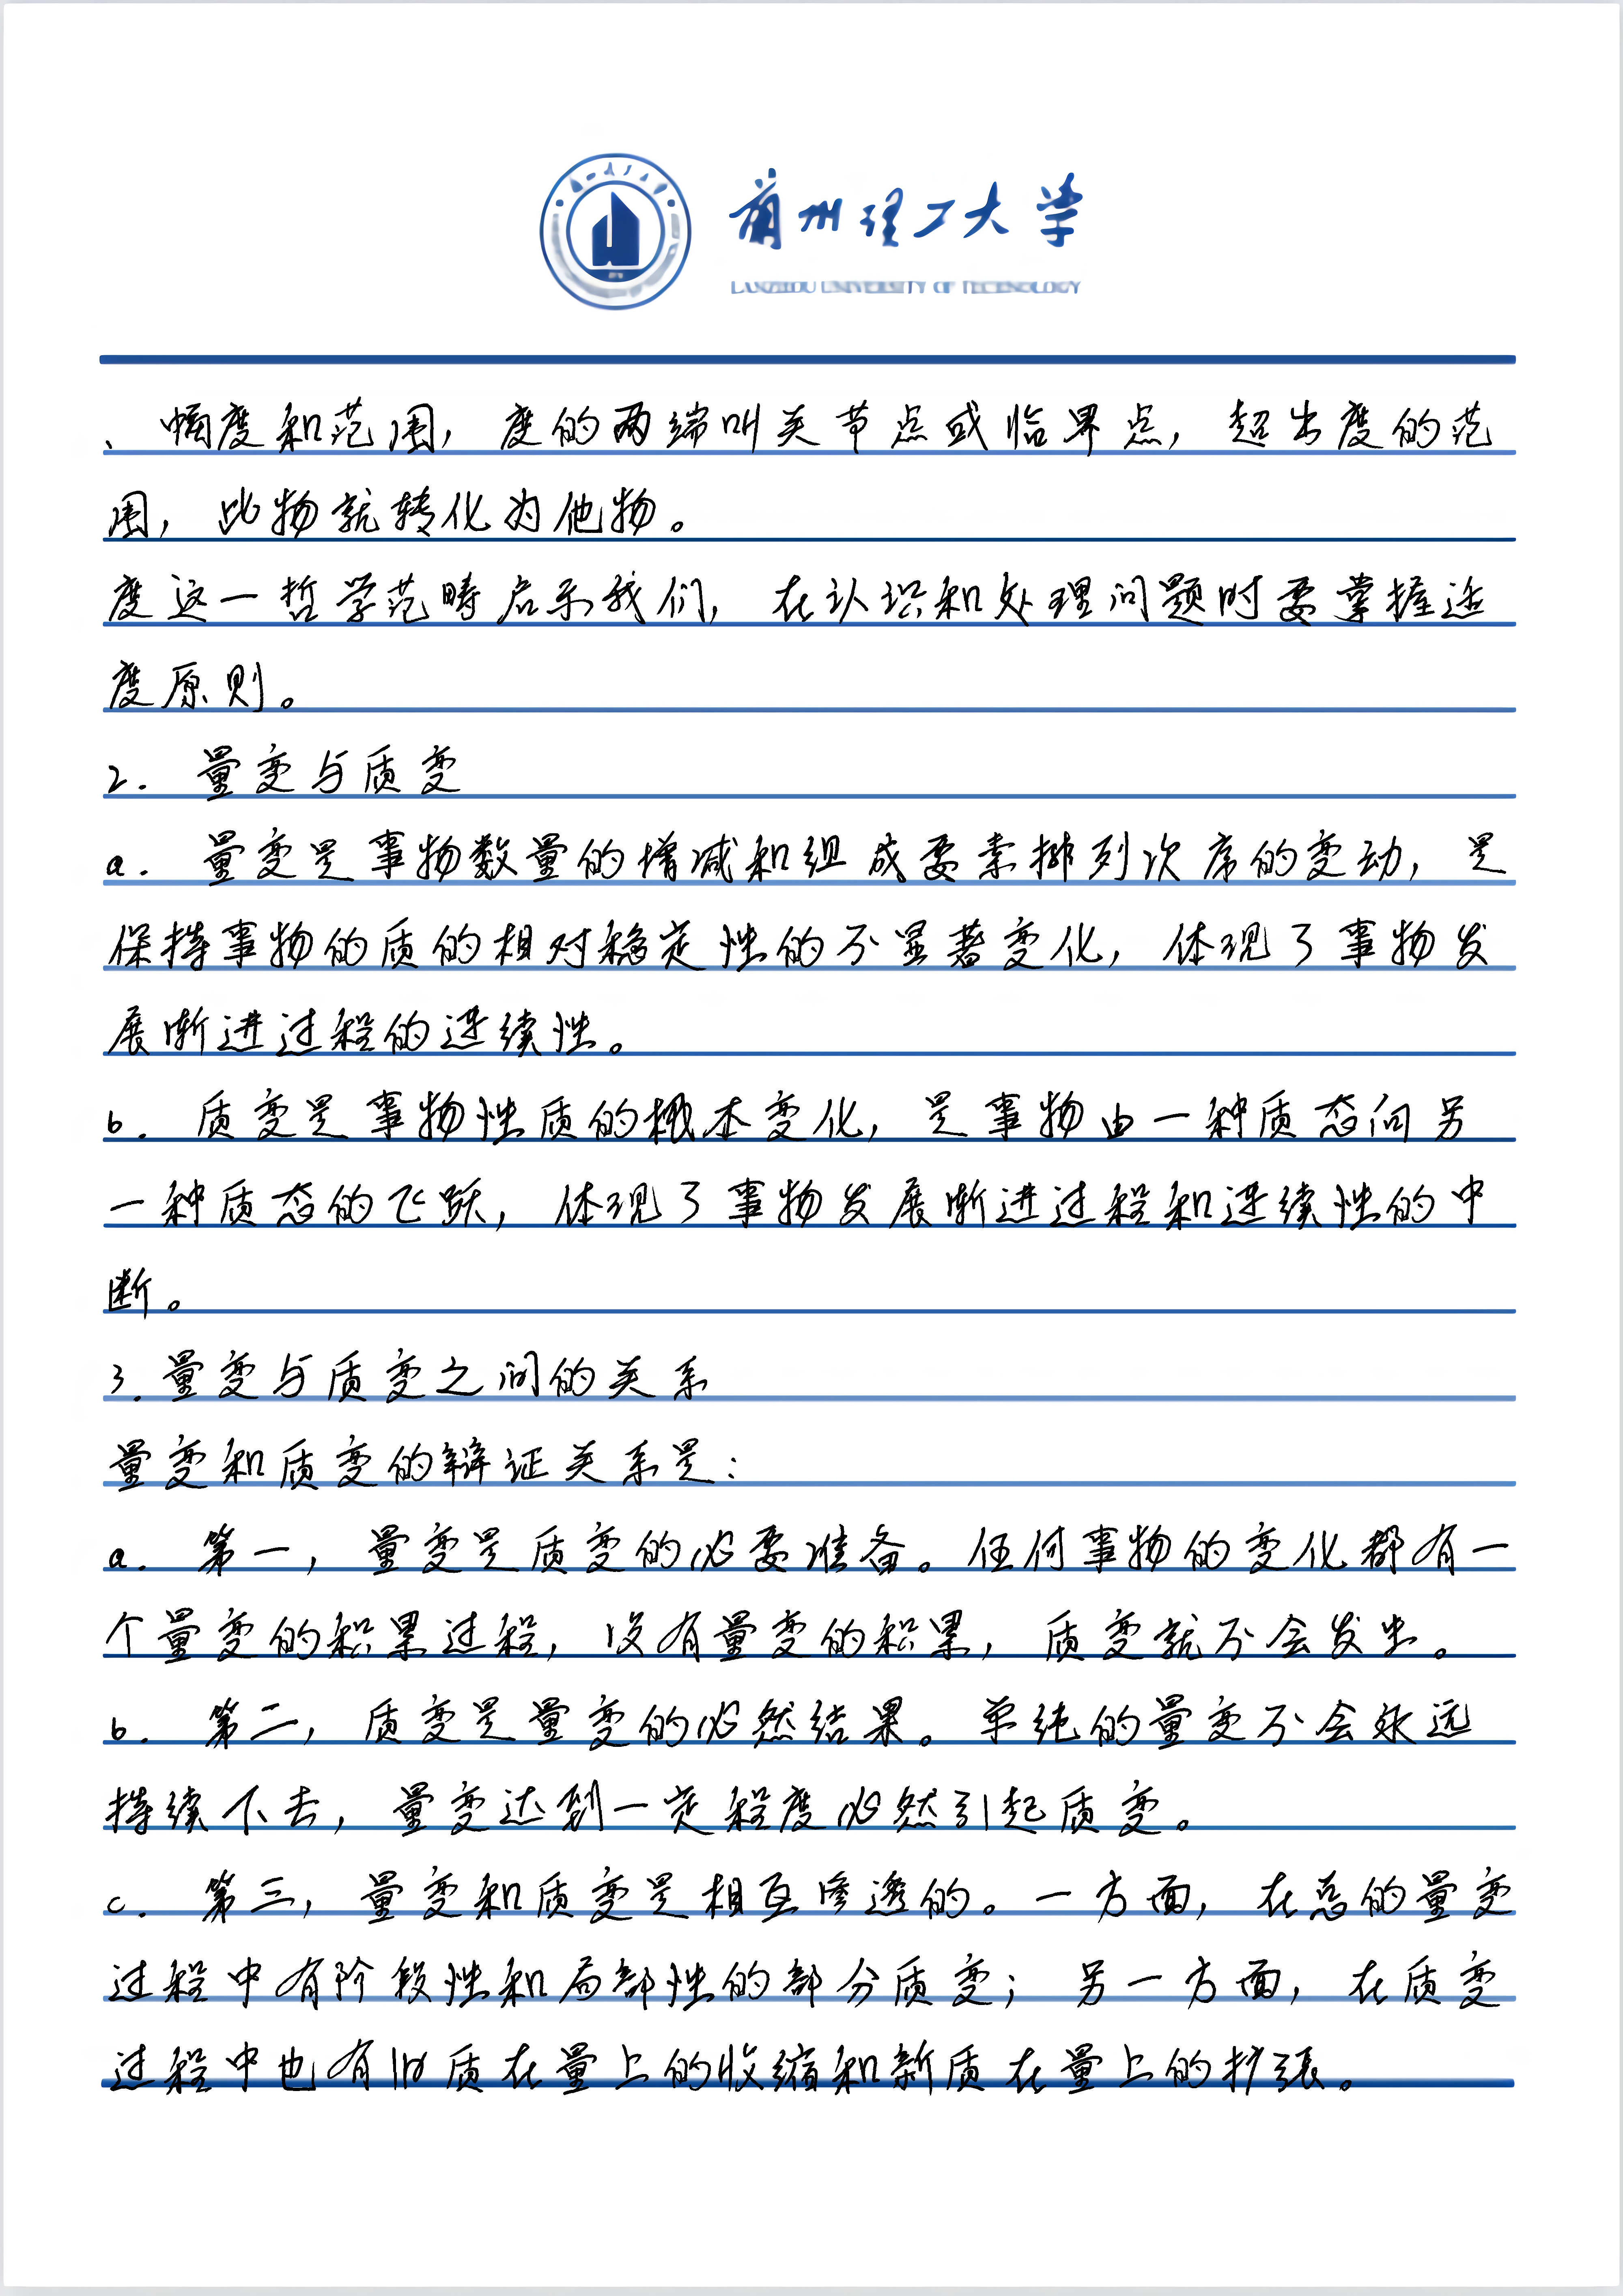 兰州理工大学
LANZHOU UNIVERSITY OF TECHNOLOGY
、幅度和范围，度的两端叫关节点或临界点，超出度的范
围，此物就转化为他物。
度这一哲学范畴启示我们，在认识和处理问题时要掌握适
度原则。
2. 量变与质变
a. 量变是事物数量的增减和组成要素排列次序的变动，是
保持事物的质的相对稳定性的不显著变化，体现了事物发
展渐进过程的连续性。
b. 质变是事物性质的根本变化，是事物由一种质态向另
一种质态的飞跃，体现了事物发展渐进过程和连续性的中
断。
3. 量变与质变之间的关系
量变和质变的辩证关系是：
a. 第一，量变是质变的必要准备。任何事物的变化都有一
个量变的积累过程，没有量变的积累，质变就不会发生。
b. 第二，质变是量变的必然结果。单纯的量变不会永远
持续下去，量变达到一定程度必然引起质变。
c. 第三，量变和质变是相互渗透的。一方面，在总的量变
过程中有阶段性和局部性的部分质变；另一方面，在质变
过程中也有旧质在量上的收缩和新质在量上的扩张。